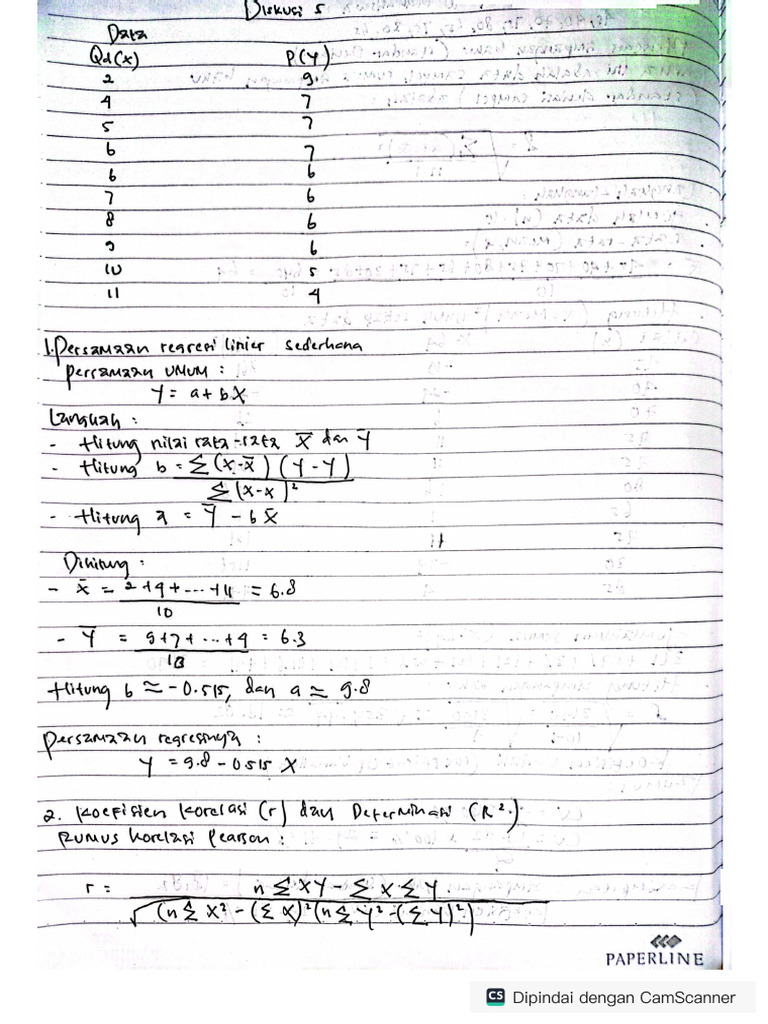 Diskusi 5
Data
Qd(x) P(Y)
2 9
4 7
5 7
6 7
6 6
7 6
8 6
9 6
10 5
11 4
1. Persamaan regresi linier sederhana
persamaan umum :
Y = a + bX
Langkah :
- Hitung nilai rata-rata X̄ dan Ȳ
- Hitung b = Σ(X-X̄) (Y-Y)
Σ(X-X)²
- Hitung a = Ȳ - bX̄
Dihitung :
- x̄ = 2+4+...+11 = 6.8
10
- Ȳ = 9+7+...+4 = 6.3
10
Hitung b ≃ -0.515, dan a ≃ 9.8
persamaan regresinya :
Y = 9.8 - 0.515 X
2. Koefisien Korelasi (r) dan Determinasi (R².)
Rumus korelasi Pearson :
r = nΣXY - ΣXΣY
√(nΣX² - (ΣX)²(nΣY² - (ΣY)²)
PAPERLINE
CS Dipindai dengan CamScanner